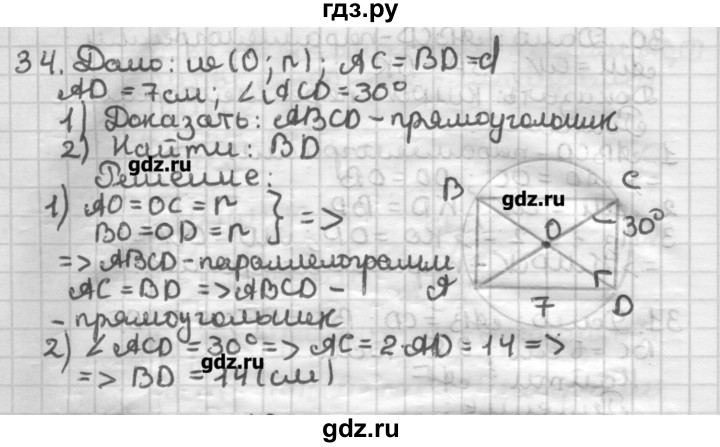 гдз.ру
34. Дано: w (O; r); AC = BD = d
AD = 7 см; ∠ACD = 30°
1) Доказать: ABCD - прямоугольник
2) Найти: BD
gdz.ru
Решение:
1) AO = OC = r } =>
BO = OD = r
=> ABCD - параллелограмм
AC = BD => ABCD -
- прямоугольник
2) ∠ACD = 30° => AC = 2·AD = 14 =>
gdz.ru
=> BD = 14 (см)
B
C
gdz.ru
O
30°
A
7
D
gdz.ru